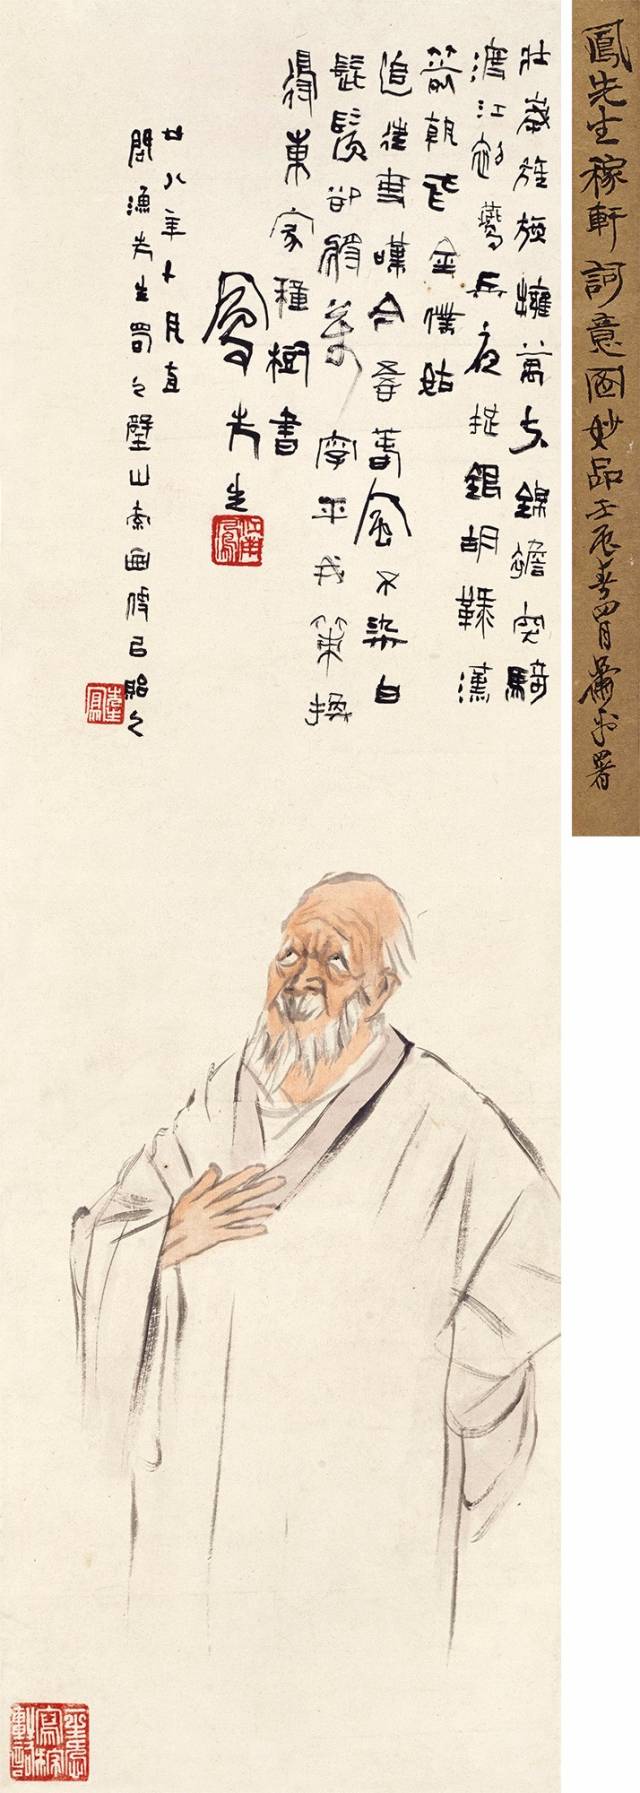 鳳先生稼軒詞意圖妙品壬辰春四月署
壯歲旌旗擁萬夫錦襜突騎
渡江初燕兵夜捉銀胡䩮漢
箭朝飛金僕姑
追往事嘆今吾春風不染白
髭鬚卻將萬字平戎策換
得東家種樹書
鳳先生
江南鳳
廿八年十月直
問漁先生蜀之璧山索畫後以貽之